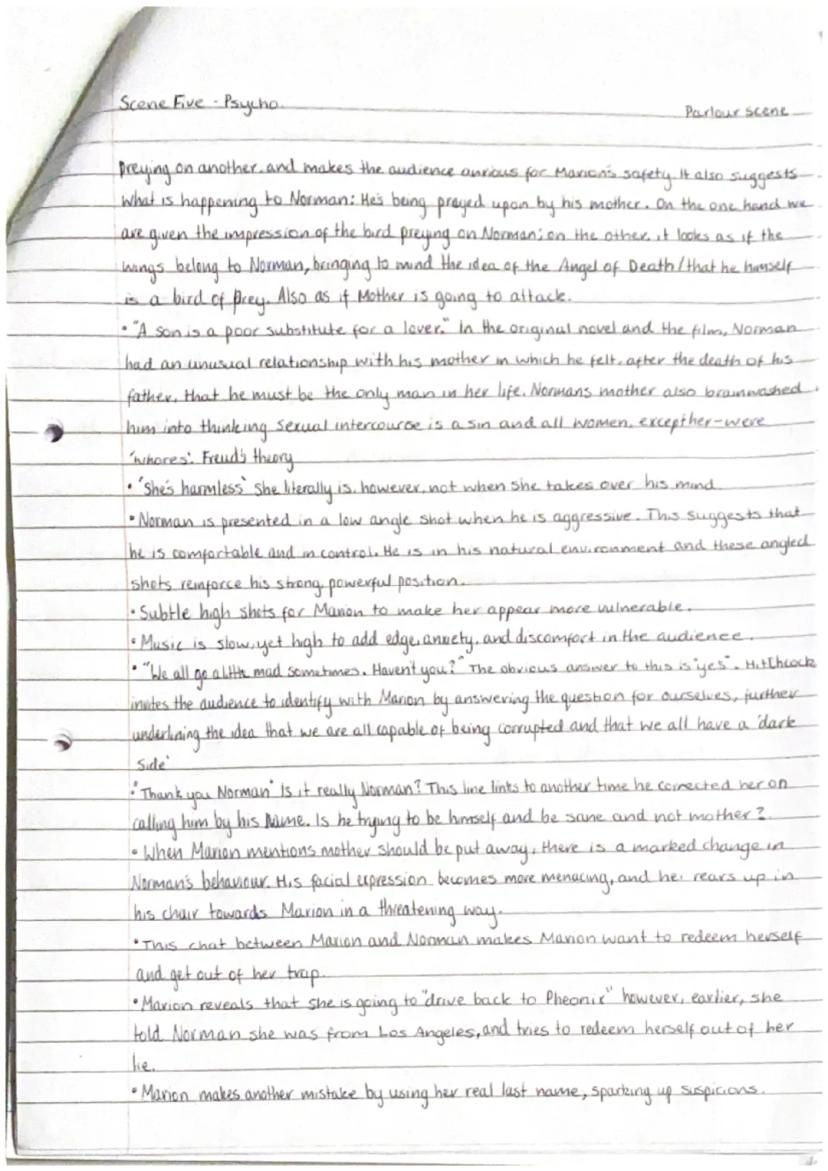 Scene Five - Psycho.
Parlour scene
preying on another, and makes the audience anxious for Marion's safety. It also suggests
what is happening to Norman: He's being preyed upon by his mother. On the one hand we
are given the impression of the bird preying on Norman; on the other, it looks as if the
wings belong to Norman, bringing to mind the idea of the Angel of Death/that he himself
is a bird of prey. Also as if Mother is going to attack.
• "A son is a poor substitute for a lover." In the original novel and the film, Norman
had an unusual relationship with his mother in which he felt, after the death of his
father, that he must be the only man in her life. Normans mother also brainwashed
him into thinking sexual intercourse is a sin and all women, except her - were
'whores'. Freud's theory
• 'She's harmless' She literally is, however, not when she takes over his mind
• Norman is presented in a low angle shot when he is aggressive. This suggests that
he is comfortable and in control. He is in his natural environment and these angled
shots reinforce his strong, powerful position.
• Subtle high shots for Marion to make her appear more vulnerable.
• Music is slow, yet high to add edge, anxiety, and discomfort in the audience.
• "We all go a little mad sometimes. Haven't you?" The obvious answer to this is "yes". Hitchcock
invites the audience to identify with Marion by answering the question for ourselves, further
underlining the idea that we are all capable of being corrupted and that we all have a 'dark
side'
• 'Thank you Norman' Is it really Norman? This line links to another time he corrected her on
calling him by his name. Is he trying to be himself and be sane and not mother?
• When Marion mentions mother should be put away, there is a marked change in
Norman's behaviour. His facial expression becomes more menacing, and he rears up in
his chair towards Marion in a threatening way.
• This chat between Marion and Norman makes Marion want to redeem herself
and get out of her trap.
• Marion reveals that she is going to "drive back to Pheonix" however, earlier, she
told Norman she was from Los Angeles, and tries to redeem herself out of her
lie.
• Marion makes another mistake by using her real last name, sparking up suspicions.